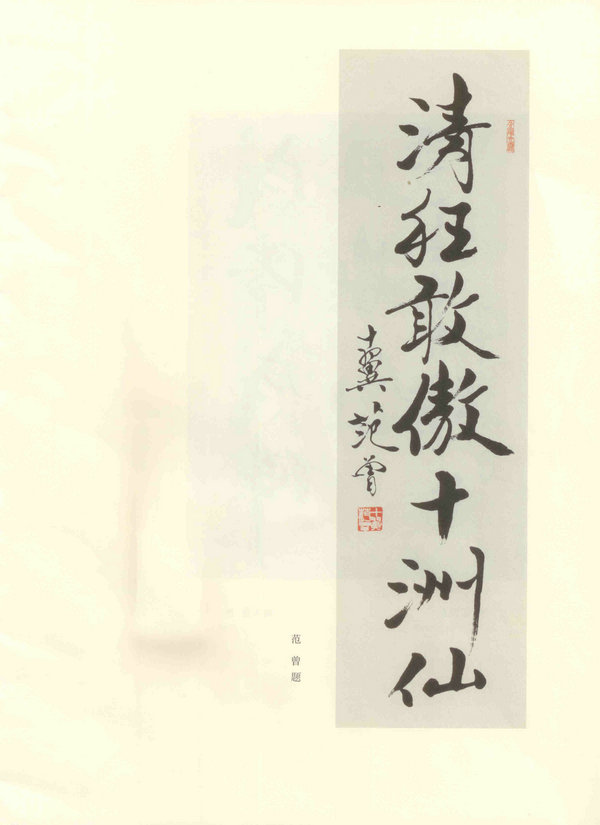 清狂敢傲十洲仙
十翼范曾
范曾题